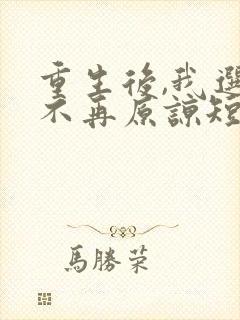 重生後,我選
不再原諒短
馬勝荣